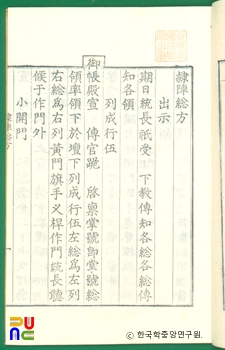 隷陣総方
出示
期日統長祇受 下教傳知各総各総傳
知各領
列成行伍
御帳殿宣 傳官跪 啓稟掌號卽掌號総
領率領下於壇下列成行伍左総爲左列
右総爲右列黃門旗手义桿作門統長聽
候于作門外
小開門
隷陣総方
© 한국학중앙연구원